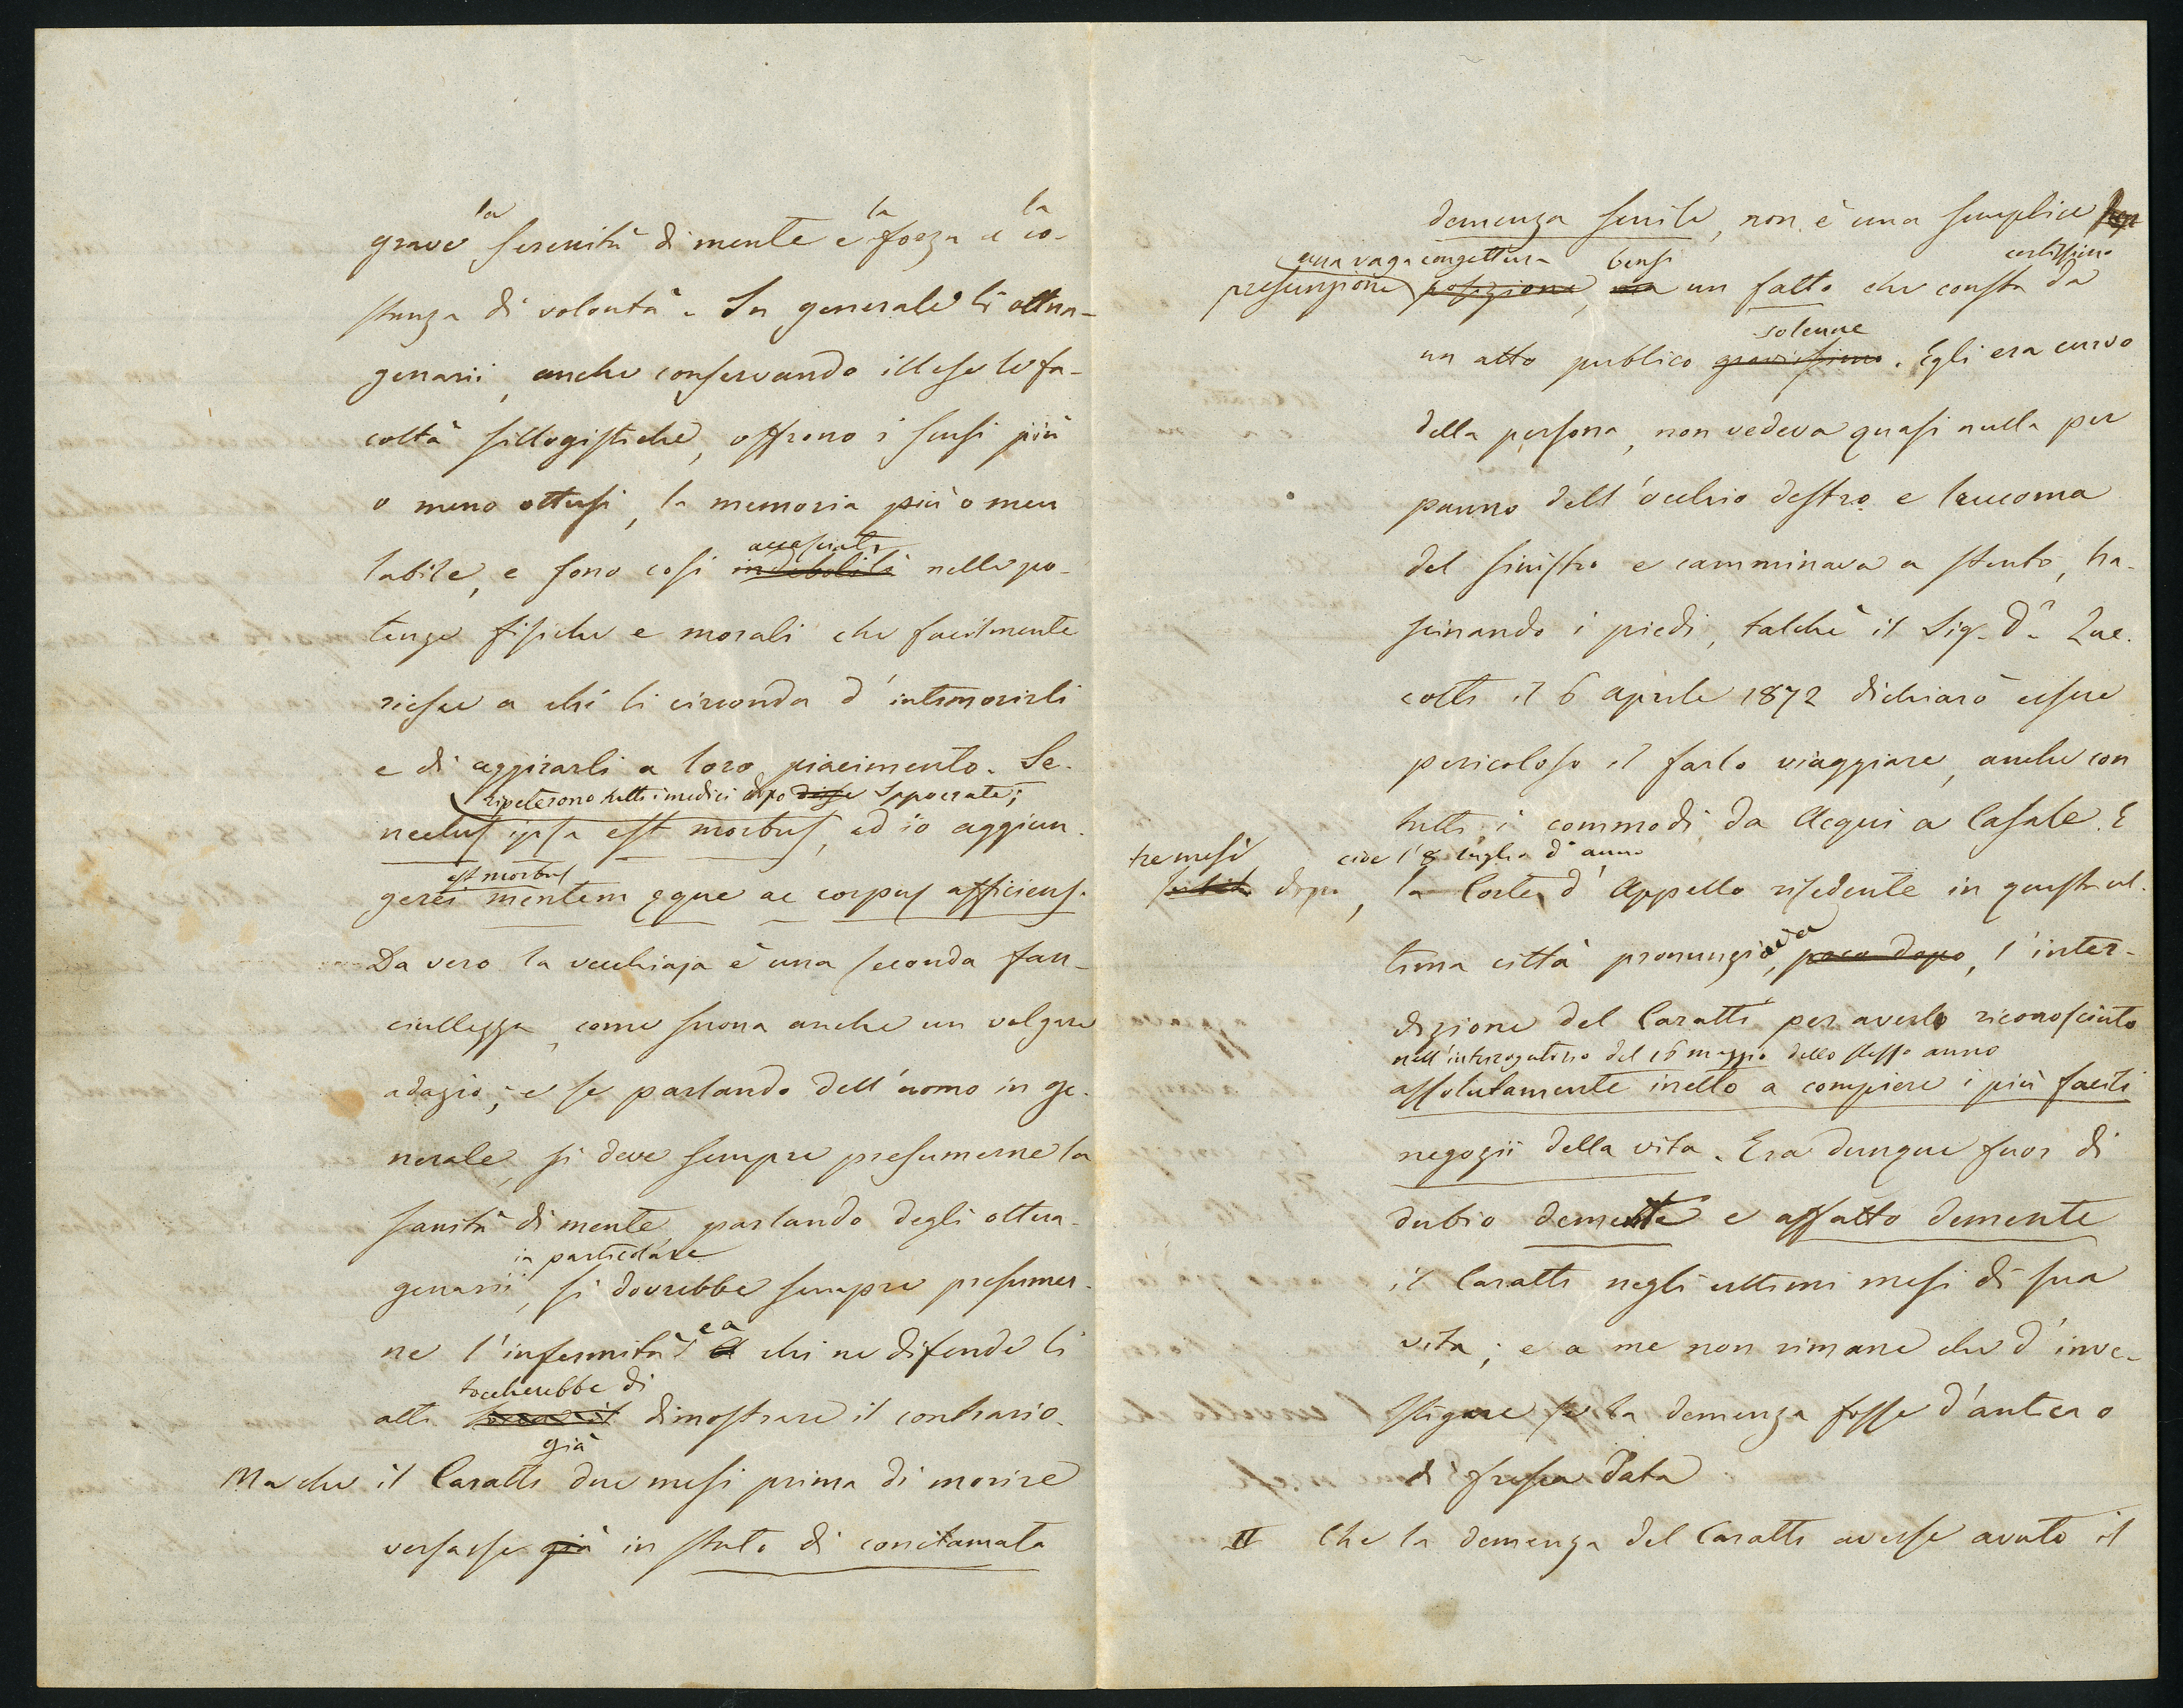 la la la
grave serenità di mente e forza e co-
stanza di volontà. In generale li ottua-
genarii, anche conservando illese le fa-
coltà sillogistiche, offrono i sensi più
o meno ottusi, la memoria più o men
accasciati
labile, e sono così indebolití nelle po-
tenze fisiche e morali che facilmente
riesce a chi li circonda d'intimorirli
e di aggirarli a loro piacimento. Se-
ripeterono tutti i medici dopo disse Ippocrate;
nectus ipsa est morbus, ed io aggiun-
est morbus
gerei mentem eque ac corpus afficiens.
Da vero la vecchiaja è una seconda fan-
ciullezza, come suona anche un volgare
adagio; e se parlando dell'uomo in ge-
nerale, si deve sempre presumerne la
sanità di mente parlando degli ottua-
in particolare
genarii, si dovrebbe sempre presumer-
ne l'infermità e a chi ne difende li
toccherebbe di
atti dimostrare il contrario.
già
Ma che il Caratti due mesi prima di morire
versasse già in stato di conclamata
demenza senile, non è una semplice
una vaga congettura bensì certissimo
presunzione posizione, ma un fatto che consta da
solenne
un atto publico gravissimo. Egli era curvo
della persona, non vedeva quasi nulla per
panno dell'occhio destro e leucoma
del sinistro e camminava a stento, tra-
scinando i piedi, talchè il Sig. D.r
cotti il 6 aprile 1872 dichiarò essere
pericoloso il farlo viaggiare, anche con
tutti i commodi da Acqui a Casale. E
tre mesi cioè l'8 luglio d.o anno
dopo, la Corte d'Appello risedente in quest'ul-
tima città pronunziava, poco dopo, l'inter-
dizione del Caratti per averlo riconosciuto
nell'interrogatorio del 16 maggio dello stesso anno
assolutamente inetto a compiere i più facili
negozii della vita. Era dunque fuor di
dubio demente e affatto demente
il Caratti negli ultimi mesi di sua
vita; e a me non rimane che d'inve-
stigare se la demenza fosse d'antica o
di fresca data
II Che la demenza del Caratti avesse avuto il